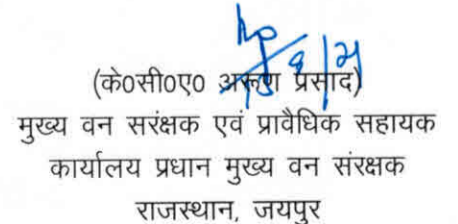 (के०सी०ए० अरूण प्रसाद)
मुख्य वन सरंक्षक एवं प्रावैधिक सहायक
कार्यालय प्रधान मुख्य वन संरक्षक
राजस्थान, जयपुर